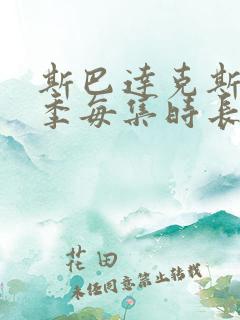 斯巴达克斯
季每集时长
花田
未经同意禁止转载